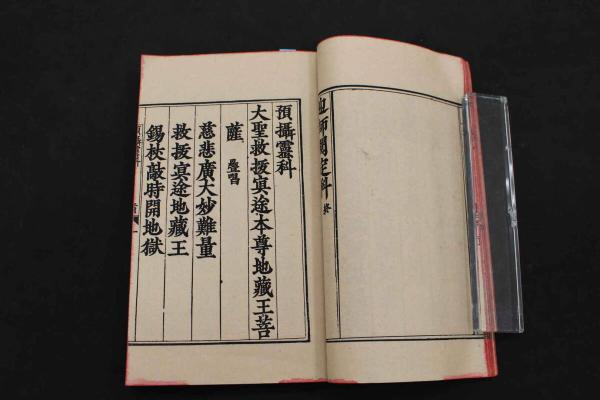 師開定科 終
預攝靈科
大聖救拔冥途本尊地藏王菩
薩 疊唱
慈悲廣大妙難量
救拔冥途地藏王
錫杖敲時開地獄